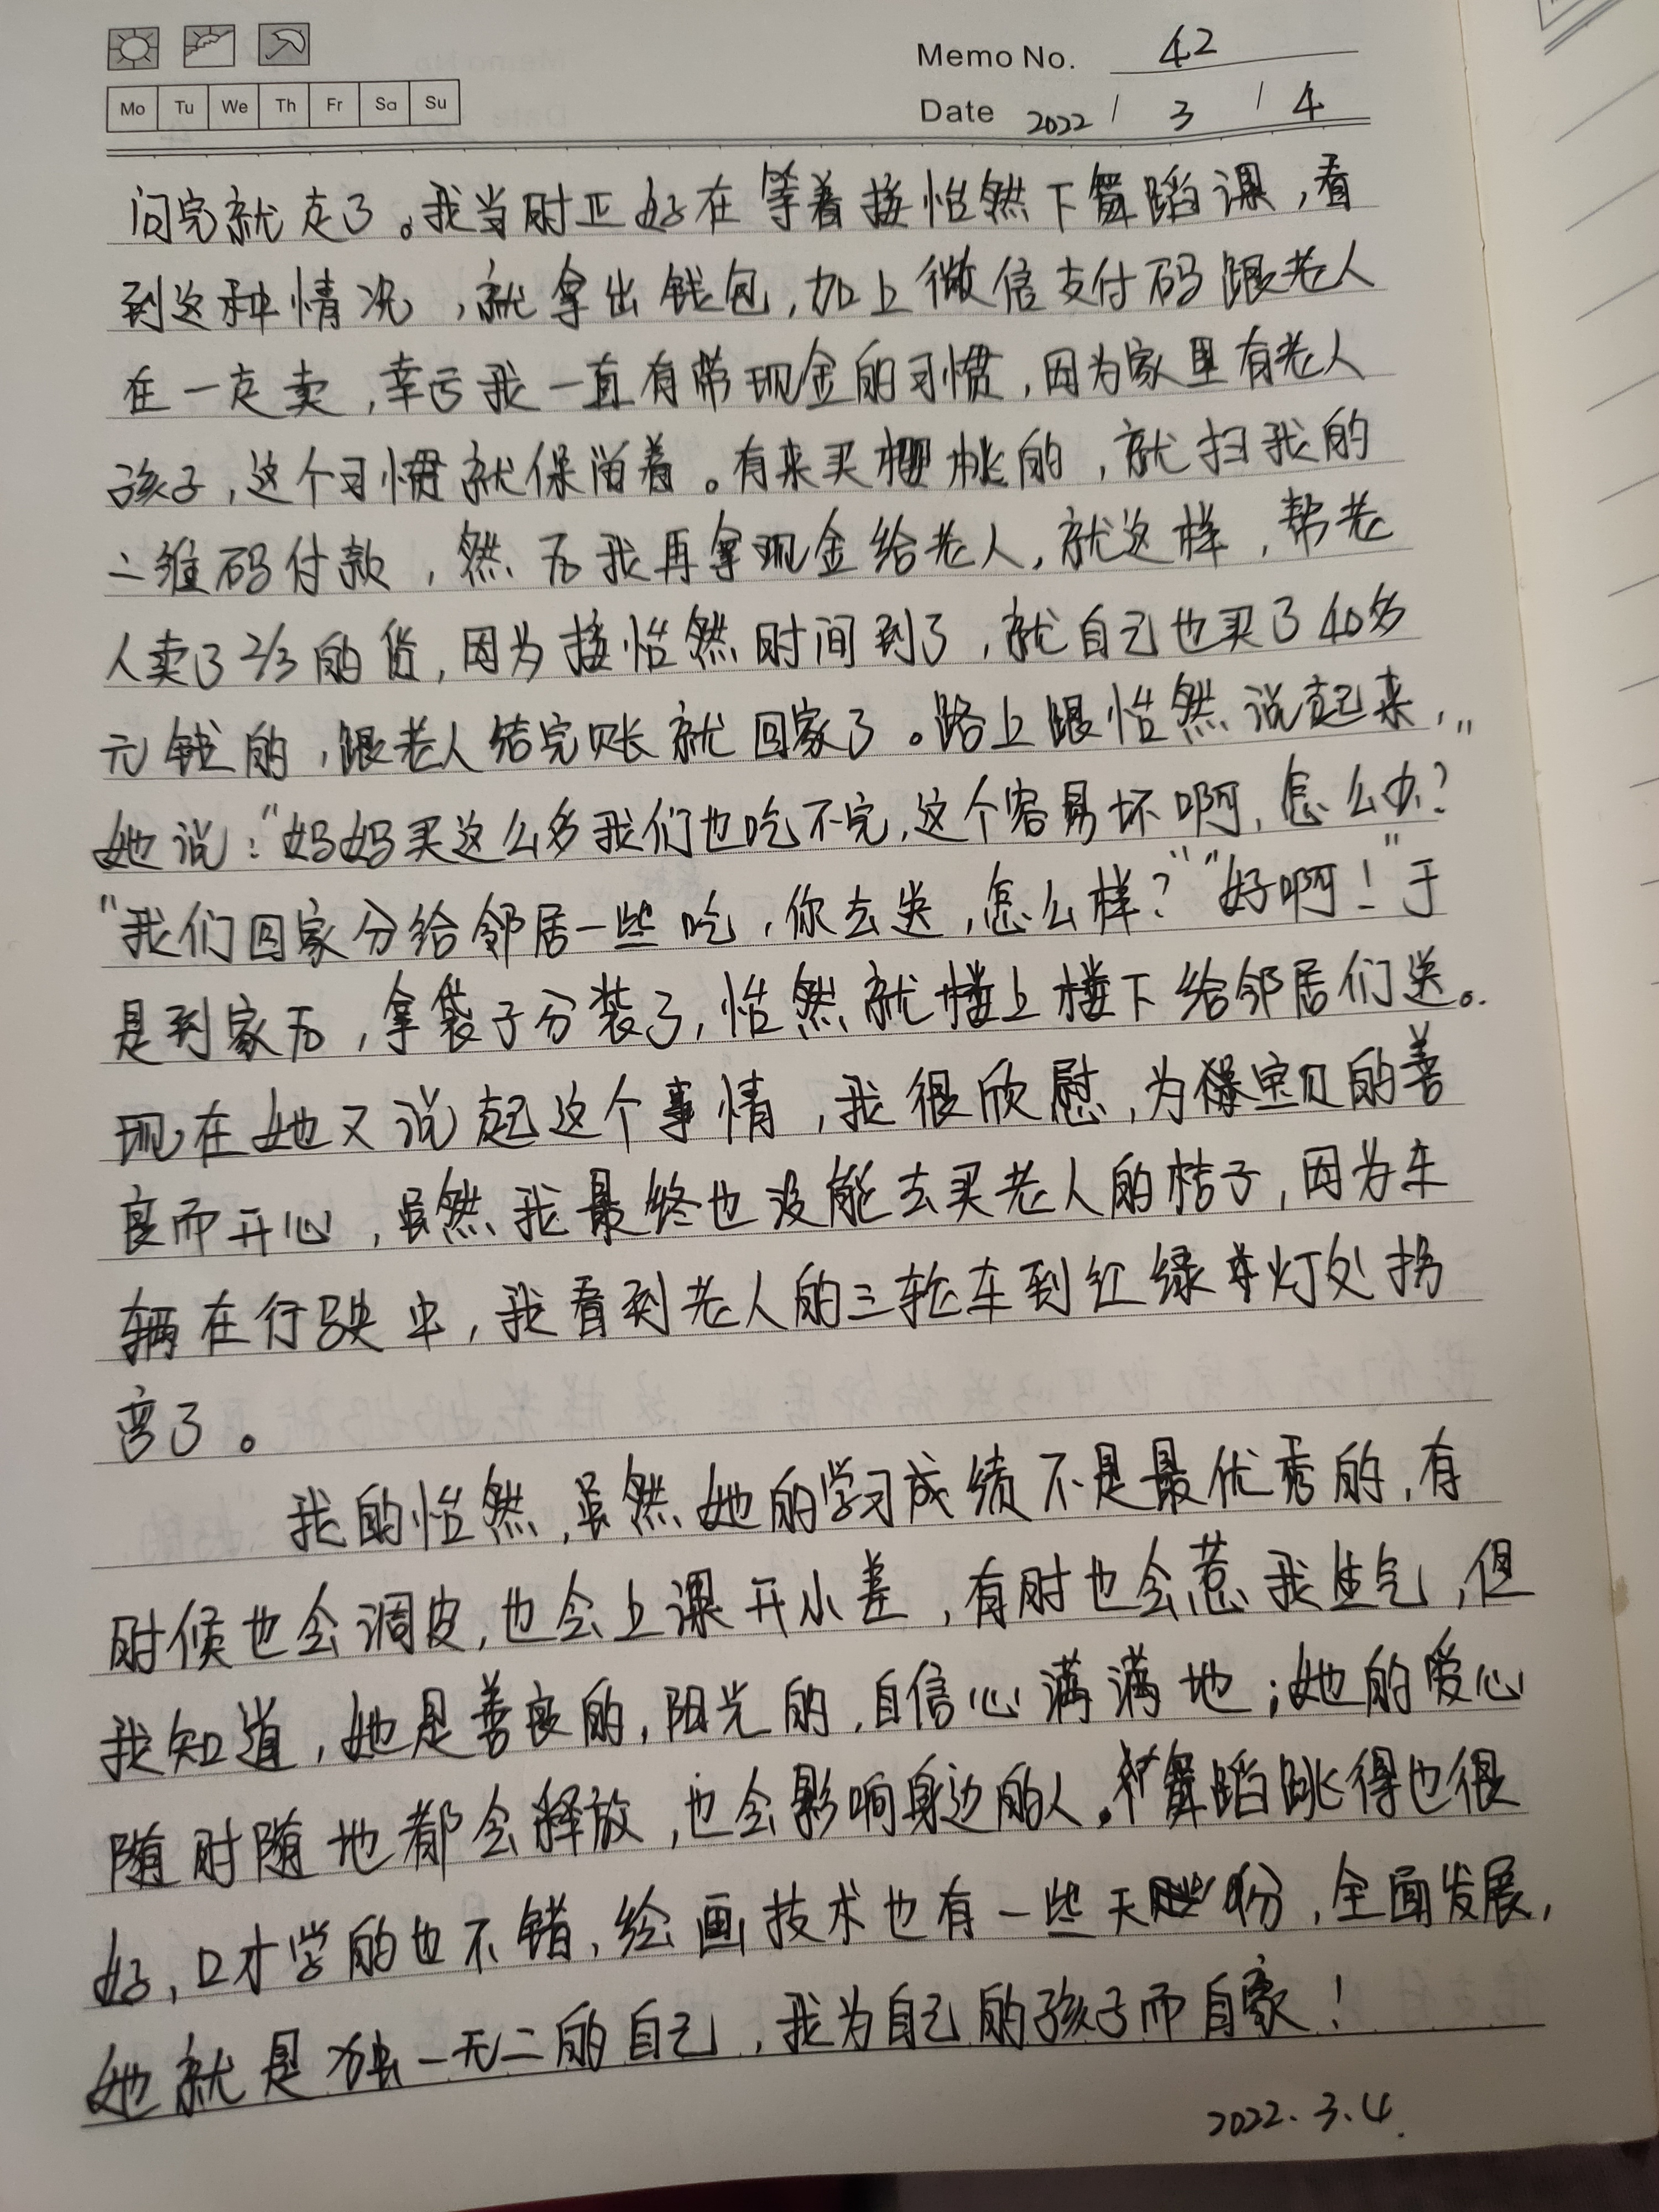 Memo No. 42
Mo Tu We Th Fr Sa Su
Date 2022 / 3 / 4
问完就走了。我当时正好在等着接怡然下舞蹈课，看
到这种情况，就拿出钱包，加上微信支付码跟老人
在一走卖，幸亏我一直有带现金的习惯，因为家里有老人
孩子，这个习惯就保留着。有来买樱桃的，就扫我的
二维码付款，然后我再拿现金给老人，就这样，帮老
人卖了2/3的货，因为接怡然时间到了，就自己也买了40多
元钱的，跟老人结完账就回家了。路上跟怡然说起来，
她说：“妈妈买这么多我们也吃不完，这个容易坏啊，怎么办？”
“我们回家分给邻居一些吃，你去送，怎么样？”“好啊！”于
是到家后，拿袋子分装了，怡然就楼上楼下给邻居们送。
现在她又说起这个事情，我很欣慰，为宝贝的善
良而开心，虽然我最终也没能去买老人的桔子，因为车
辆在行驶中，我看到老人的三轮车到红绿灯处拐
弯了。
我的怡然，虽然她的学习成绩不是最优秀的，有
时候也会调皮，也会上课开小差，有时也会惹我生气，但
我知道，她是善良的，阳光的，自信心满满地；她的爱心
随时随地都会释放，也会影响身边的人。舞蹈跳得也很
好，口才学的也不错，绘画技术也有一些天份，全面发展，
她就是独一无二的自己，我为自己的孩子而自豪！
2022.3.4.